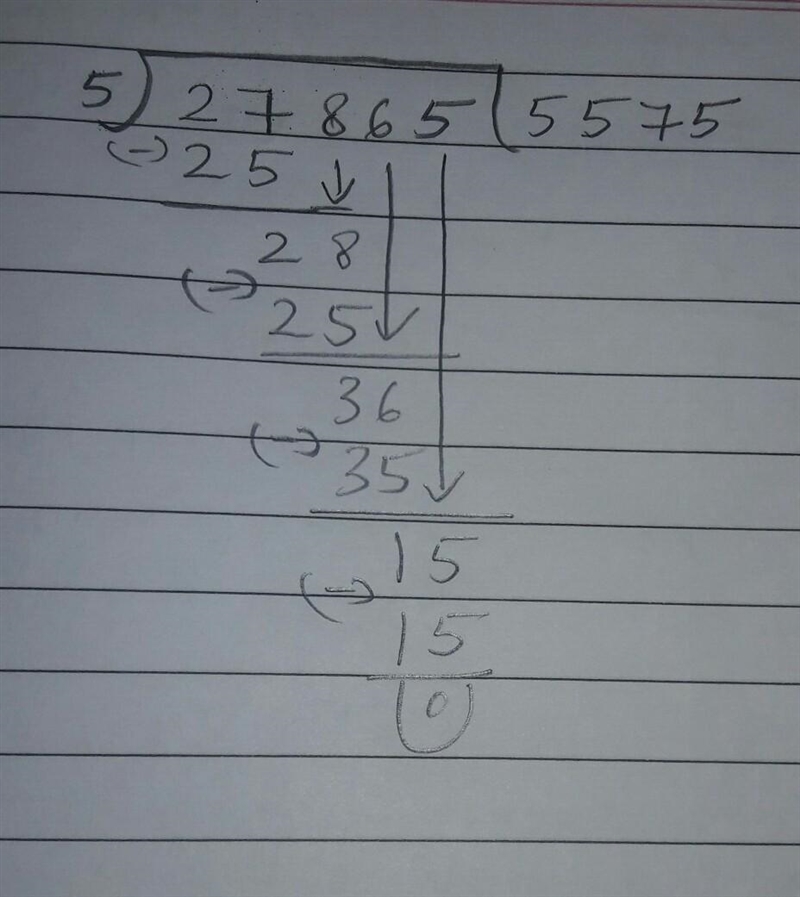 5) 27865 ( 5575
(-) 25
28
(-)
25
36
(-)
35
15
(-)
15
0